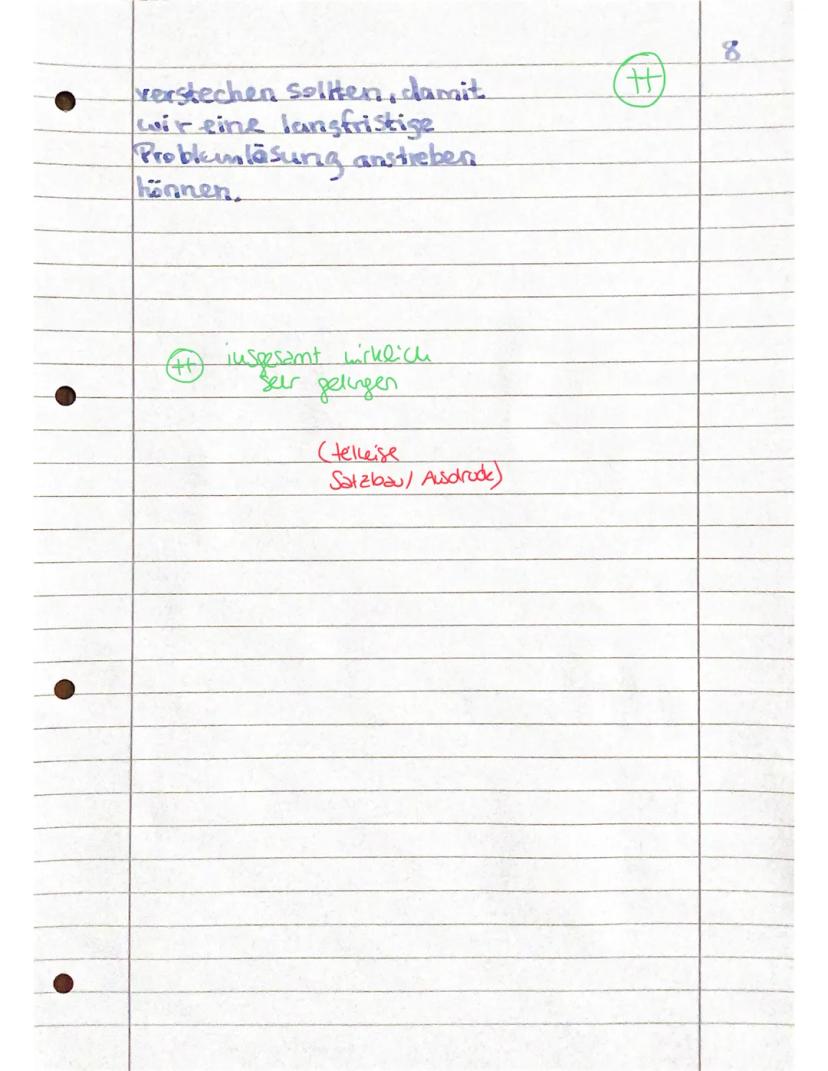 8
++
verstechen sollten, damit
wir eine langfristige
Problemlösung anstreben
können.
++ insgesamt wirklich
sehr gelungen
(teilweise
Satzbau/ Ausdruck)